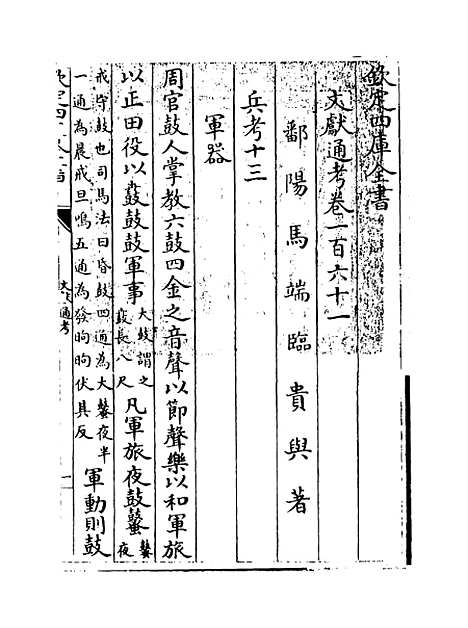 欽定四庫全書
文獻通考卷一百六十一
鄱陽馬端臨貴與著
兵考十三
軍器
周官鼓人掌教六鼓四金之音聲以節聲樂以和軍旅
以正田役以鼖鼓鼓軍事大鼓謂之鼖鼖長八尺凡軍旅夜鼓鼜鼜夜
戒守鼓也司馬法曰昏鼓四通為大鼜夜半一通為晨戒旦鳴五通為發昫昫休具反軍動則鼓
文獻通考